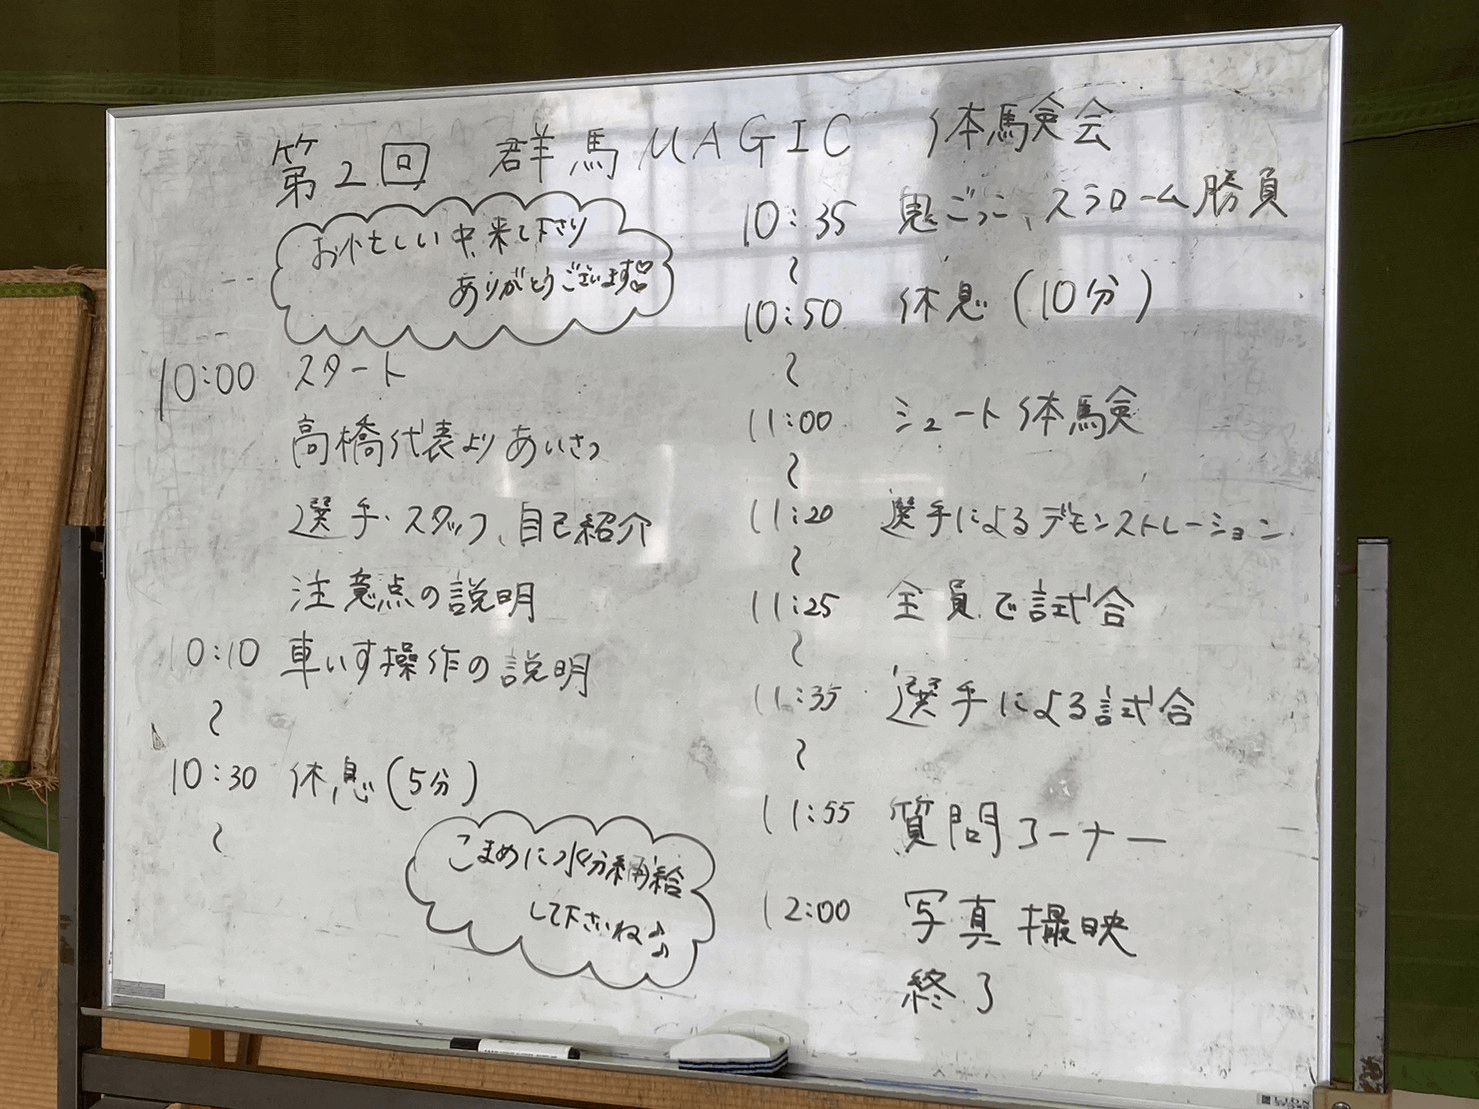 第2回 群馬MAGIC 体験会
お忙しい中、来て下さり
ありがとうございます♡♡
10:00 スタート
高橋代表よりあいさつ
選手・スタッフ、自己紹介
注意点の説明
10:10 車いす操作の説明
〜
10:30 休息(5分)
〜
こまめに水分補給
して下さいね♪♪
10:35 鬼ごっこ、スラローム勝負
〜
10:50 休息(10分)
〜
11:00 シュート体験
〜
11:20 選手によるデモンストレーション
〜
11:25 全員で試合
〜
11:35 選手による試合
〜
11:55 質問コーナー
12:00 写真撮映
終了